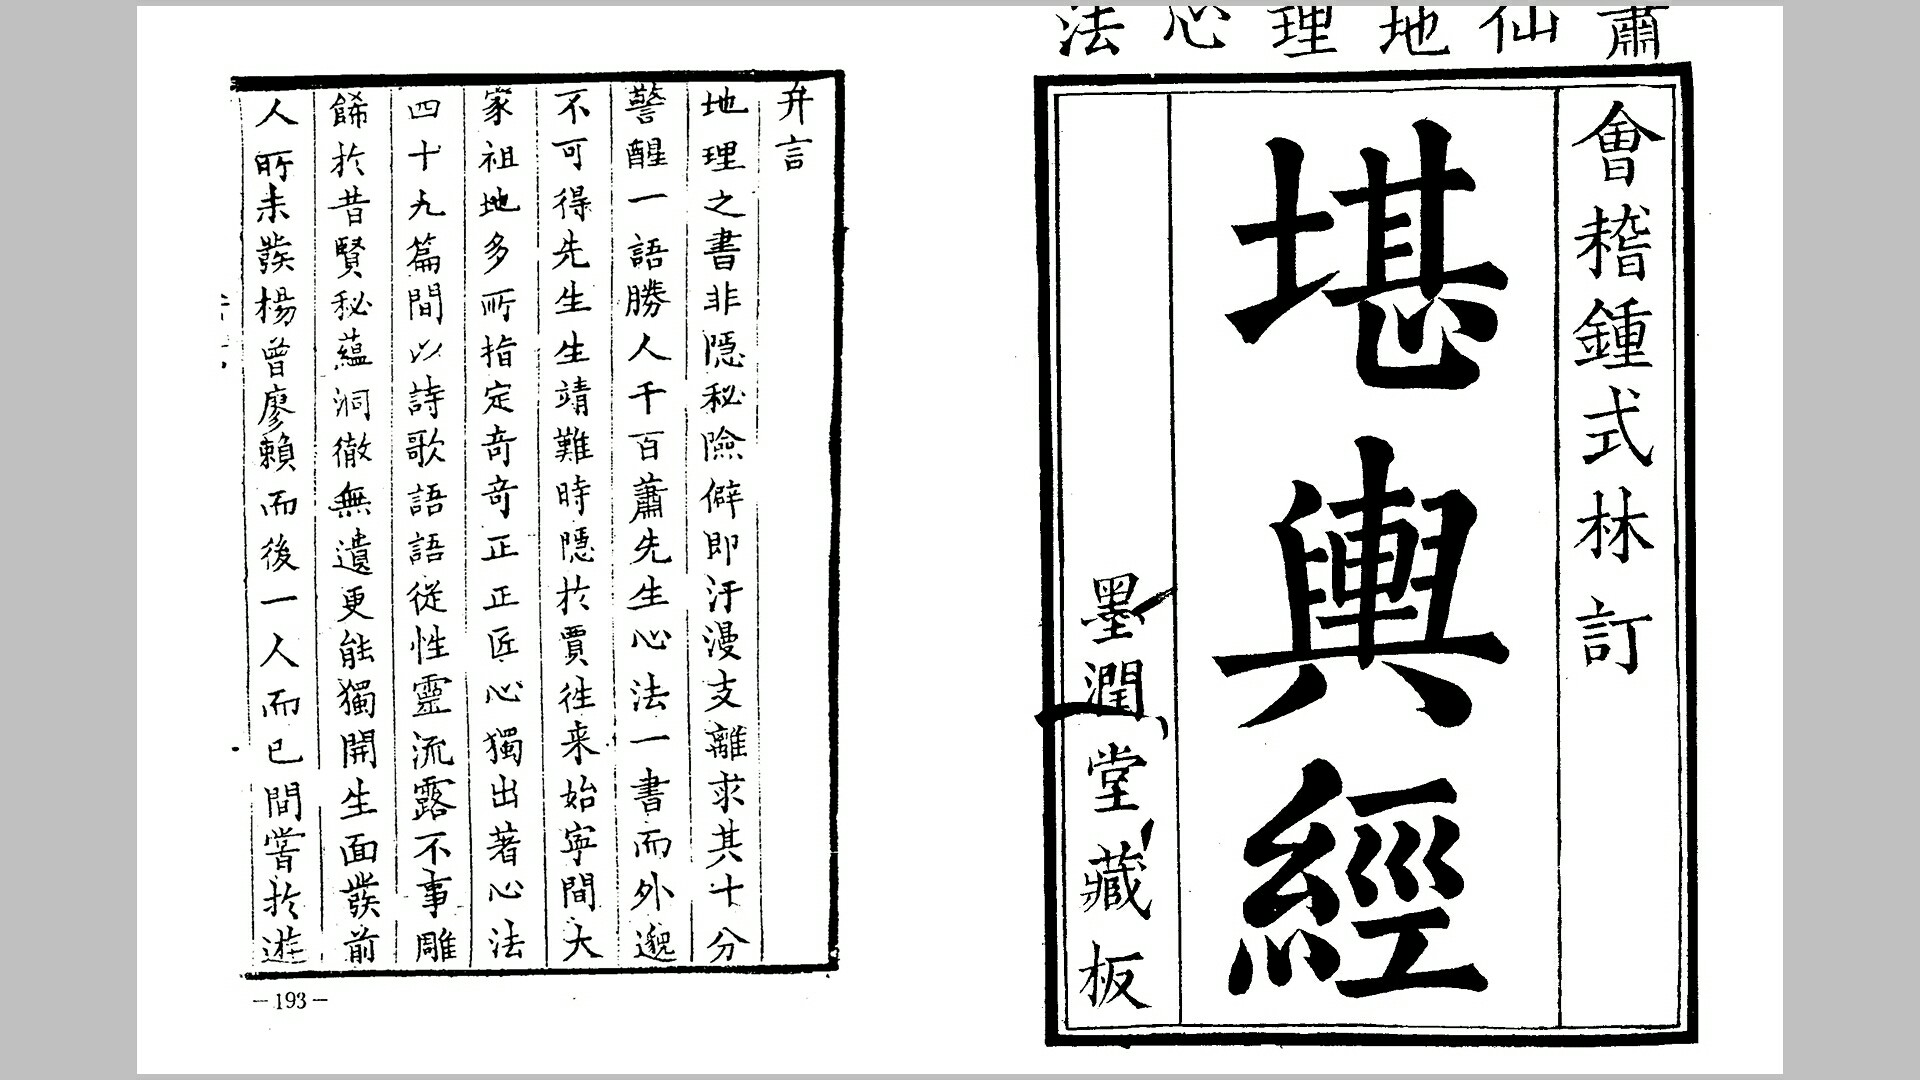 蕭仙地理心法
會稽鍾式林訂
堪輿經
墨潤堂藏板
弁言
地理之書非隱秘險僻即汙漫支離求其十分
警醒一語勝人千百蕭先生心法一書而外邈
不可得先生生靖難時隱於賈徃来始寧間大
家祖地多所指定奇奇正正匠心獨出著心法
四十九篇間以詩歌語語從性靈流露不事雕
餙於昔賢秘蘊洞徹無遺更能獨開生面發前
人所未發楊曾廖賴而後一人而已間嘗於遊
—193—